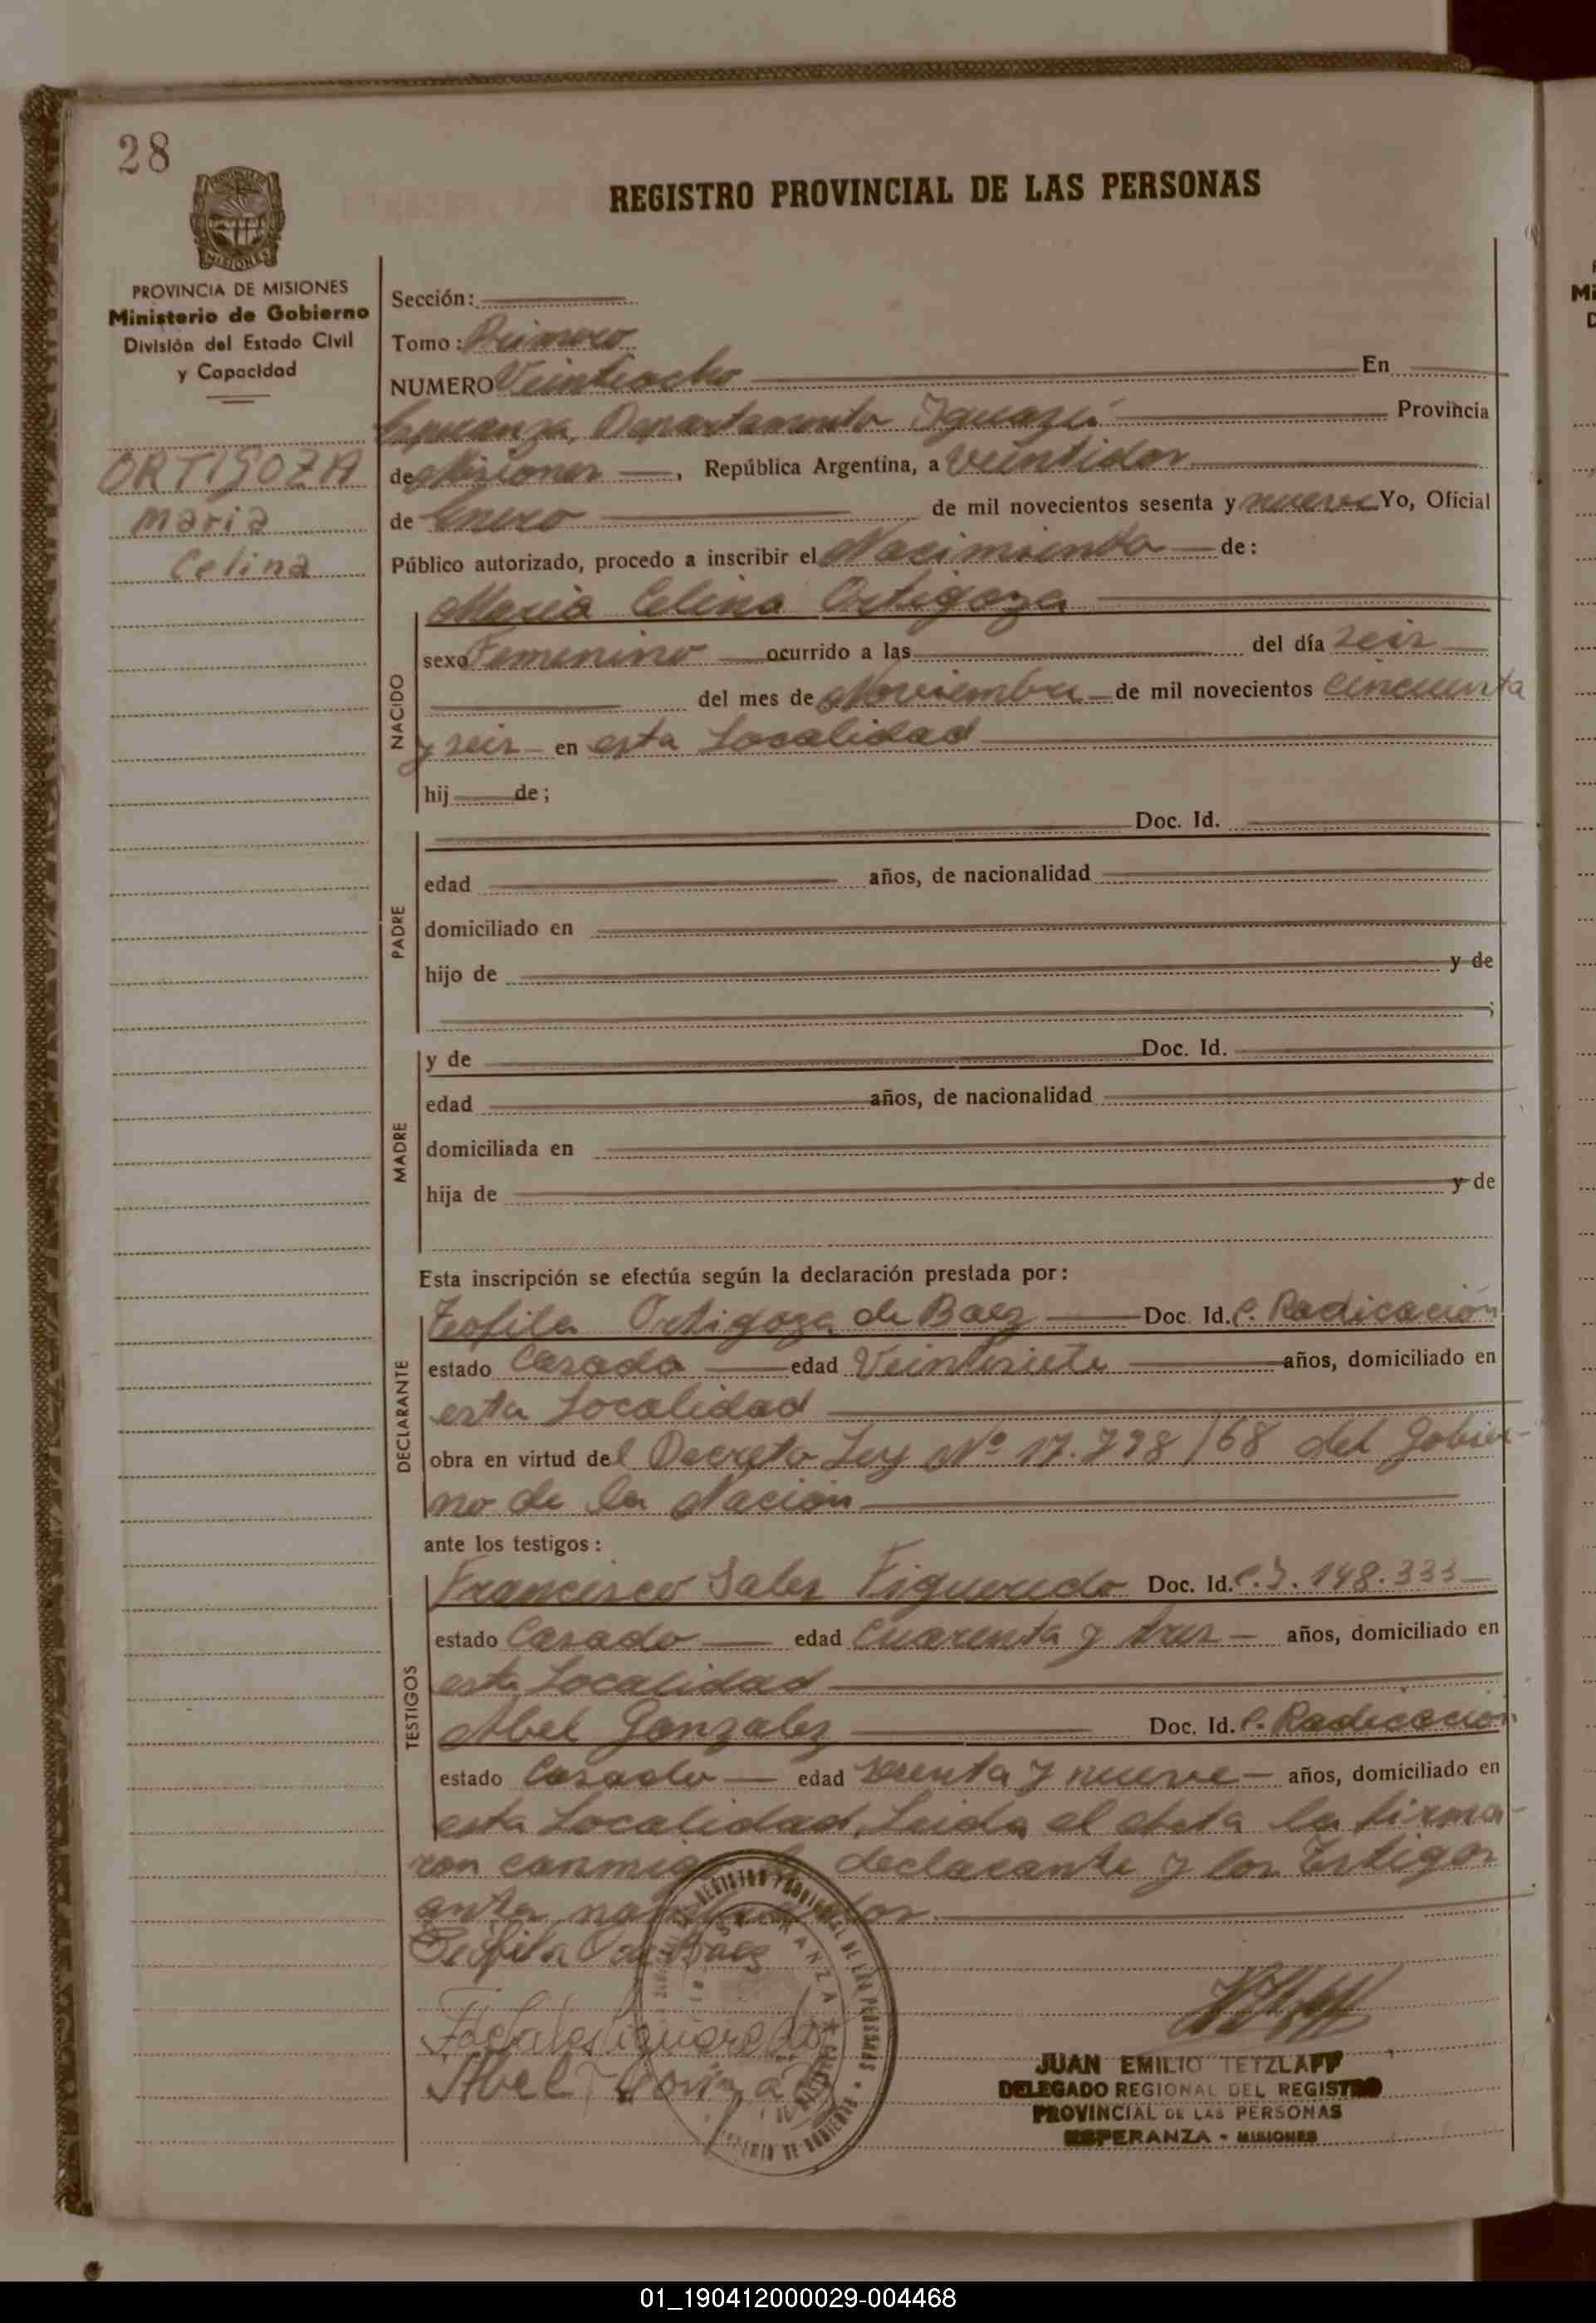 28
REGISTRO PROVINCIAL DE LAS PERSONAS
MISIONES
PROVINCIA DE MISIONES
Ministerio de Gobierno
División del Estado Civil
y Capacidad
ORTIGOZA
Maria
Celina
Sección:
Tomo: Primero
NUMERO Veintiocho En
Esperanza, Departamento Iguazú Provincia
de Misiones, República Argentina, a veintidos
de Enero de mil novecientos sesenta y nueve Yo, Oficial
Público autorizado, procedo a inscribir el Nacimiento de:
NACIDO
Maria Celina Ortigoza
sexo Femenino ocurrido a las del día seis
del mes de Noviembre de mil novecientos cincuenta
y seis en esta Localidad
hij de;
PADRE
Doc. Id.
edad años, de nacionalidad
domiciliado en
hijo de y de
;
MADRE
y de Doc. Id.
edad años, de nacionalidad
domiciliada en
hija de y de
Esta inscripción se efectúa según la declaración prestada por:
DECLARANTE
Teofila Ortigoza de Baez Doc. Id. C. Radicación
estado Casada edad Veintisiete años, domiciliado en
esta Localidad
obra en virtud del Decreto Ley Nº 17.798/68 del Gobier-
no de la Nación
ante los testigos:
TESTIGOS
Francisco Sales Figueredo Doc. Id. C.I. 148.333
estado Casado edad Cuarenta y tres años, domiciliado en
esta Localidad
Abel Gonzalez Doc. Id. C. Radicación
estado Casado edad sesenta y nueve años, domiciliado en
esta Localidad, Leida el Acta la firma-
ron conmigo la declarante y los Testigos
antes nombrados.
Teofila O de Baez
Abel
REGISTRO PROVINCIAL DE LAS PERSONAS
JUAN EMILIO TETZLAFF
DELEGADO REGIONAL DEL REGISTRO
PROVINCIAL DE LAS PERSONAS
ESPERANZA - MISIONES
01_190412000029-004468